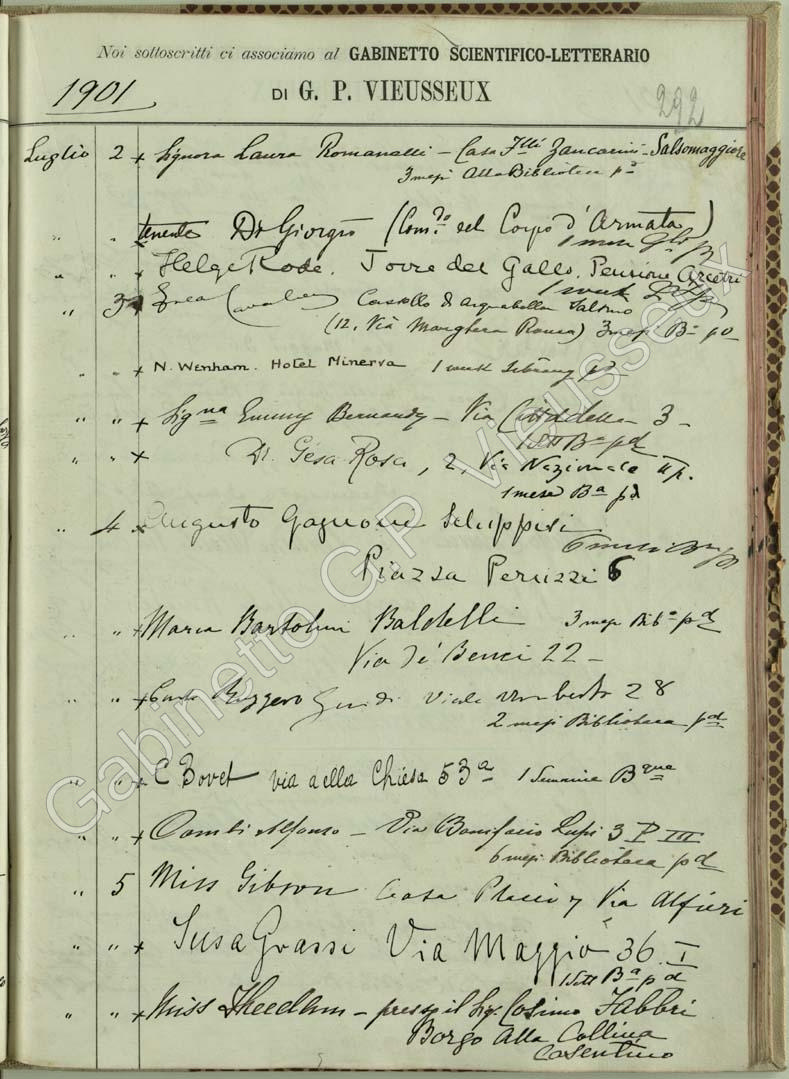 Noi sottoscritti ci associamo al GABINETTO SCIENTIFICO-LETTERARIO
1901
DI G. P. VIEUSSEUX
292
Luglio 2 x Signora Laura Romanelli – Casa F.lli Zancarini – Salsomaggiore
3 mesi Alla Biblioteca pd
" " tenente De Giorgis (Com.do del Corpo d'Armata)
" " x Helge Rode. Torre del Gallo. Pensione Arcetri
1 week
" 3 x Cavalieri Castello di Arquabella Salerno
(12, Via Marghera Roma) 3 mesi Ba pd
" " x N. Wenham. Hotel Minerva 1 week Library pd
" " x Sig na Emmy Bernardy – Via Cittadella 3 –
1 Sett Ba pd
" " x Dr. Gésa Rosa, 2, Via Nazionale IIp.
1 mese Ba pd
" 4 x Augusto Gagnone Schippisi
6 mesi
Piazza Peruzzi 6
" " x Maria Bartolini Baldelli 3 mesi Biba pd
Via de' Benci 22 –
" " x Conte Ruggero Guidi Viale Umberto 28
2 mesi Biblioteca pd
" " x C Bovet via della Chiesa 53a 1 Semaine Bque
" " x Combi Alfonso – Via Bonifacio Lupi 3 P III
6 mesi Biblioteca pd
" 5 Miss Gibson Casa Placci 7 Via Alfieri
" " x Susa Grassi Via Maggio 36 I
1 Sett Ba pd
" " x Miss – presso il Sig. Cosimo Fabbri
Borgo Alla Collina
Casentino
Gabinetto G.P. Vieusseux